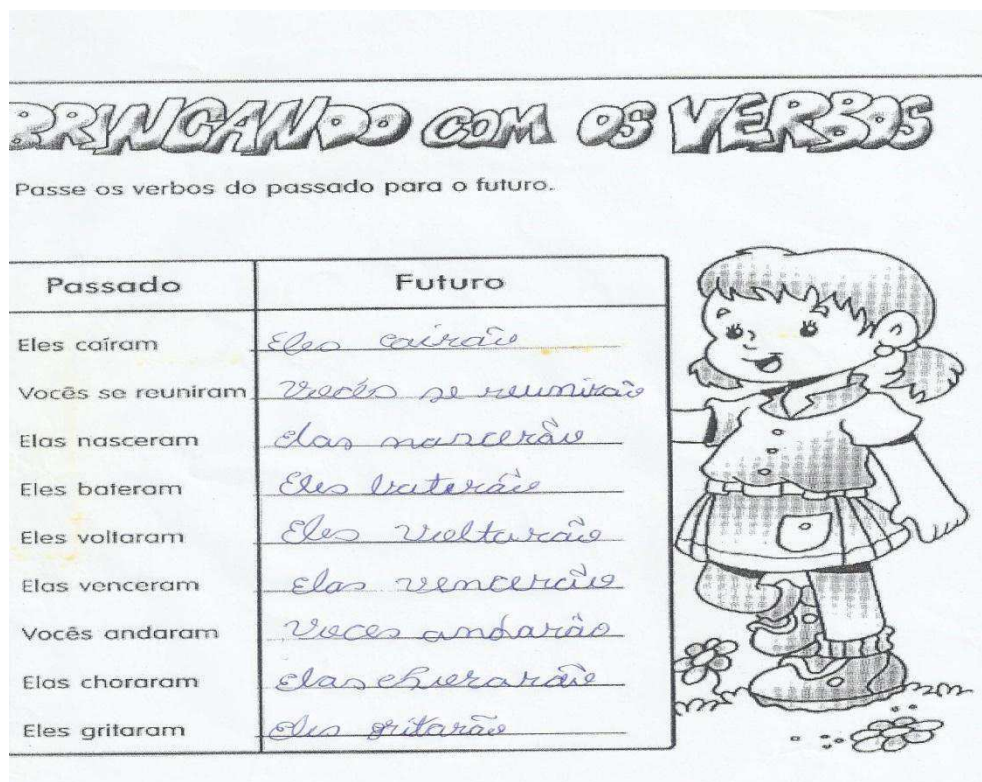 BRINCANDO COM OS VERBOS
Passe os verbos do passado para o futuro.
Passado Futuro
Eles caíram Eles cairão
Vocês se reuniram Vocês se reunirão
Elas nasceram Elas nascerão
Eles bateram Eles baterão
Eles voltaram Eles voltarão
Elas venceram Elas vencerão
Vocês andaram Voces andarão
Elas choraram Elas chorarão
Eles gritaram Eles gritarão